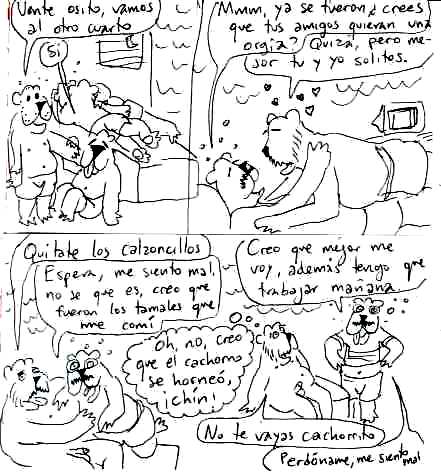 Vente osito, vamos
al otro cuarto
Si
Mmm, ya se fueron ¿crees
que tus amigos quieran una
orgia? Quiza, pero me-
jor tu y yo solitos.
Quitate los calzoncillos
Espera, me siento mal,
no se que es, creo que
fueron los tamales que
me comi
Creo que mejor me
voy, además tengo que
trabajar mañana.
Oh, no, creo
que el cachorro
se horneó,
¡chin!
No te vayas cachorrito
Perdóname, me siento mal